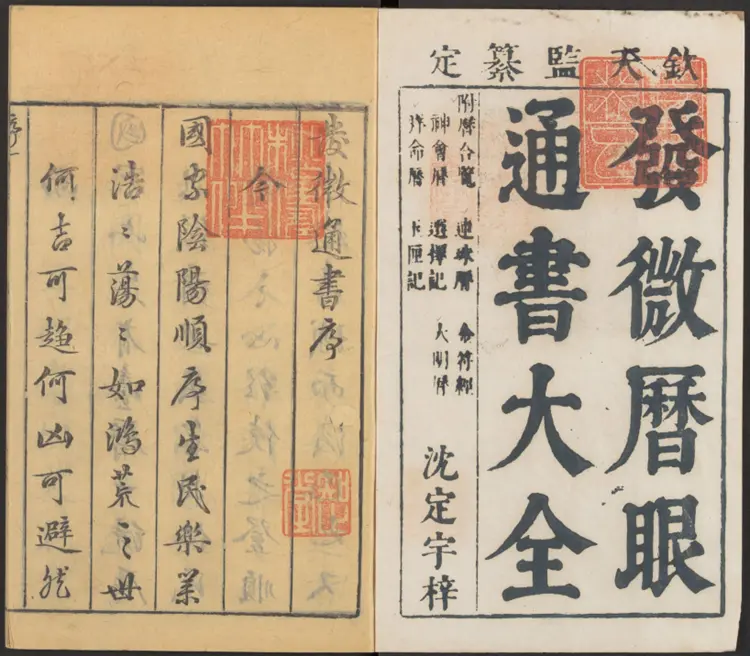 欽天監纂定
發微曆眼
通書大全
附曆合覽 連珠曆 金符經
神會曆 選擇記 大明曆
命曆 玉匣記
沈定宇梓
發微通書序
今
國家陰陽順序生民樂業
浩〻蕩〻如鴻荒之世
何吉可趨何凶可避然
序一